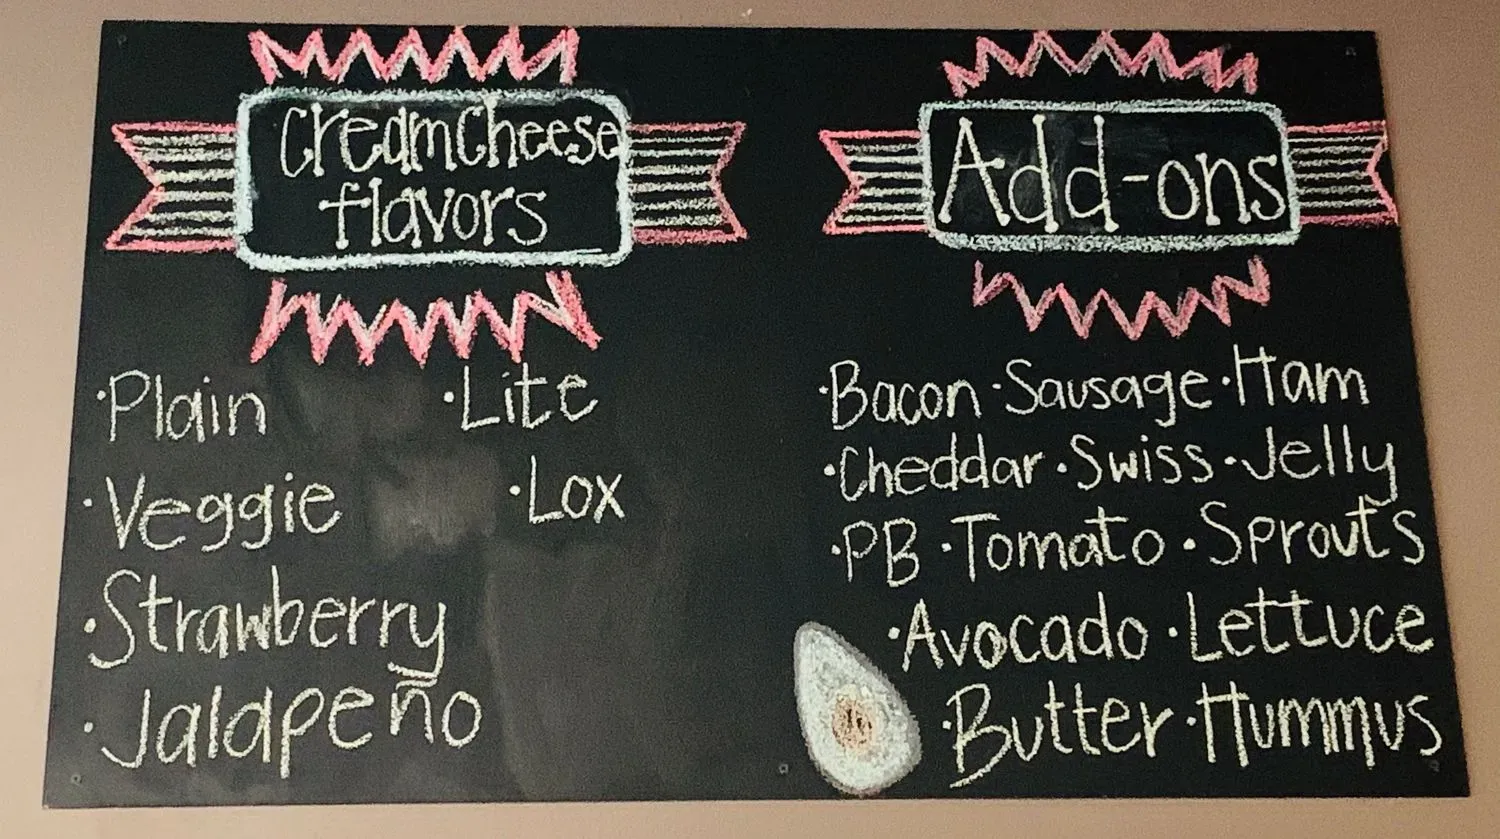 CreamCheese
flavors
·Plain ·Lite
·Veggie ·Lox
·Strawberry
·Jalapeño
Add-ons
·Bacon ·Sausage ·Ham
·Cheddar ·Swiss ·Jelly
·PB ·Tomato ·Sprouts
·Avocado ·Lettuce
·Butter ·Hummus